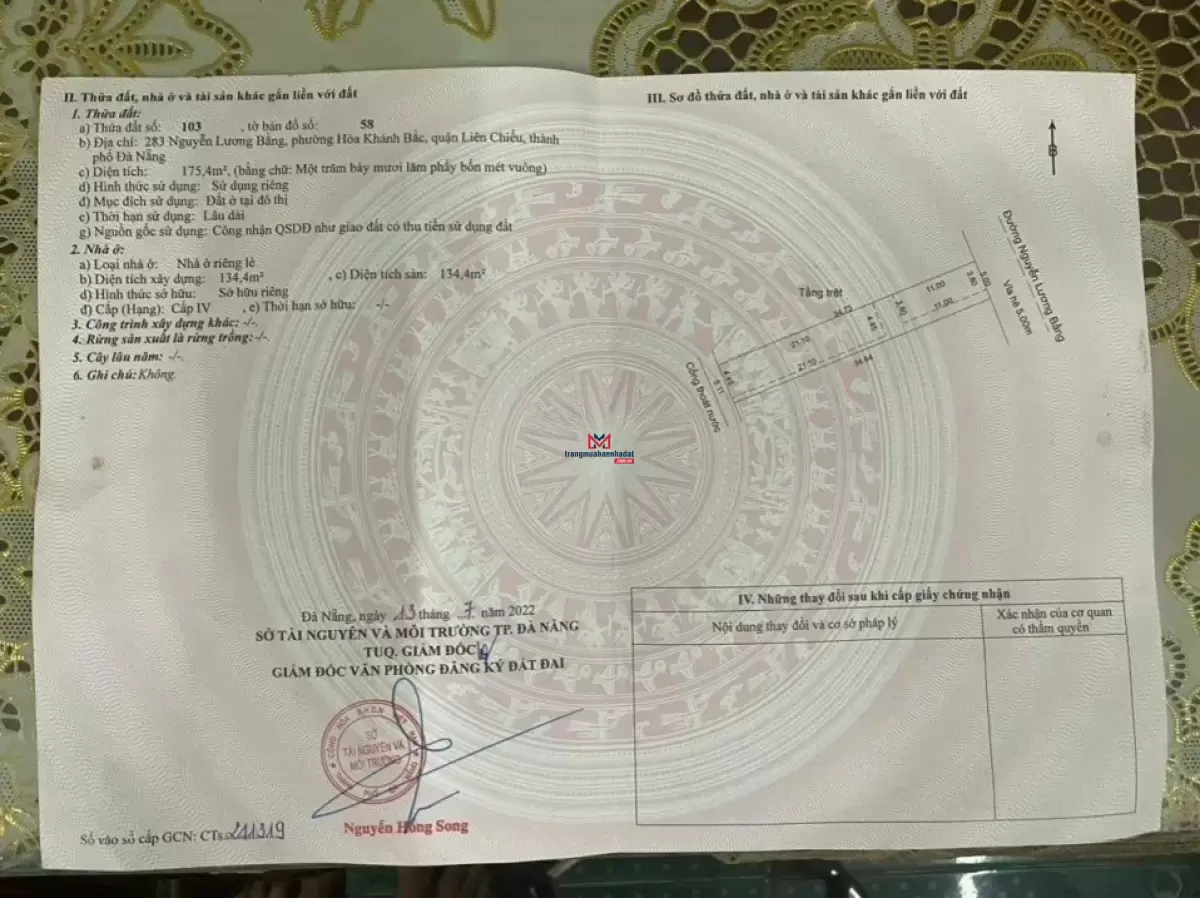 II. Thửa đất, nhà ở và tài sản khác gắn liền với đất
1. Thửa đất:
a) Thửa đất số: 103 , tờ bản đồ số: 58
b) Địa chỉ: 283 Nguyễn Lương Bằng, phường Hòa Khánh Bắc, quận Liên Chiểu, thành
phố Đà Nẵng
c) Diện tích: 175,4m², (bằng chữ: Một trăm bảy mươi lăm phẩy bốn mét vuông)
d) Hình thức sử dụng: Sử dụng riêng
đ) Mục đích sử dụng: Đất ở tại đô thị
e) Thời hạn sử dụng: Lâu dài
g) Nguồn gốc sử dụng: Công nhận QSDĐ như giao đất có thu tiền sử dụng đất
2. Nhà ở:
a) Loại nhà ở: Nhà ở riêng lẻ
b) Diện tích xây dựng: 134,4m² , c) Diện tích sàn: 134,4m²
d) Hình thức sở hữu: Sở hữu riêng
đ) Cấp (Hạng): Cấp IV , e) Thời hạn sở hữu: -/-
3. Công trình xây dựng khác: -/-.
4. Rừng sản xuất là rừng trồng: -/-.
5. Cây lâu năm: -/-.
6. Ghi chú: Không.
Đà Nẵng, ngày 13 tháng 7 năm 2022
SỞ TÀI NGUYÊN VÀ MÔI TRƯỜNG TP. ĐÀ NẴNG
TUQ. GIÁM ĐỐC
GIÁM ĐỐC VĂN PHÒNG ĐĂNG KÝ ĐẤT ĐAI
SỞ
TÀI NGUYÊN VÀ
MÔI TRƯỜNG
Nguyễn Hồng Song
Số vào sổ cấp GCN: CTs 241319
III. Sơ đồ thửa đất, nhà ở và tài sản khác gắn liền với đất
B
Đường Nguyễn Lương Bằng
Vỉa hè 5.00m
Tầng trệt
34.73
11.00
3.80
5.00
4.45
3.80
11.00
21.10
21.10
34.64
4.45
5.11
Cống thoát nước
trangmuabannhadat
.com.vn
IV. Những thay đổi sau khi cấp giấy chứng nhận
Nội dung thay đổi và cơ sở pháp lý
Xác nhận của cơ quan
có thẩm quyền